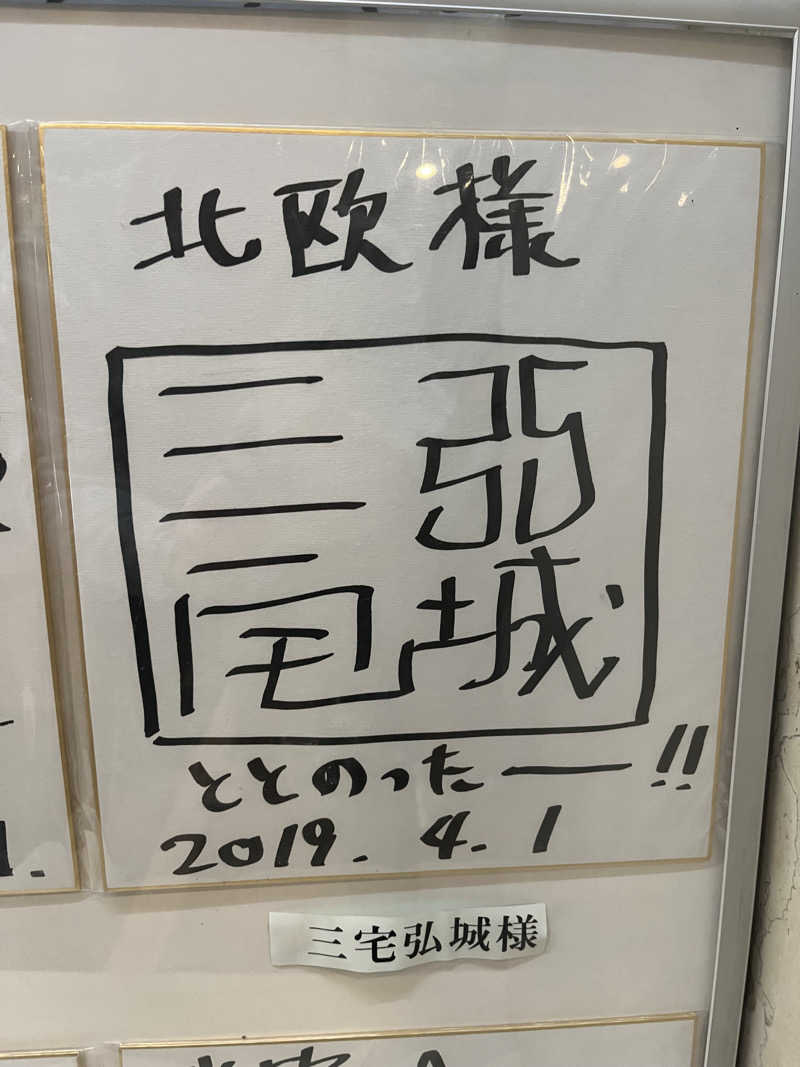 北欧様
三宅
弘城
ととのったー!!
2019.4.1
三宅弘城様